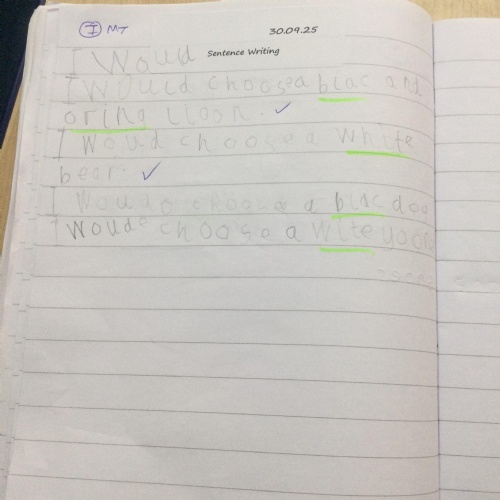 I MT
30.09.25
Sentence Writing
I Woud
I Would choose a blac and
oring lioon.
I Woud choose a white
bear.
I Woud choose a blac dog
I Woud choose a wite